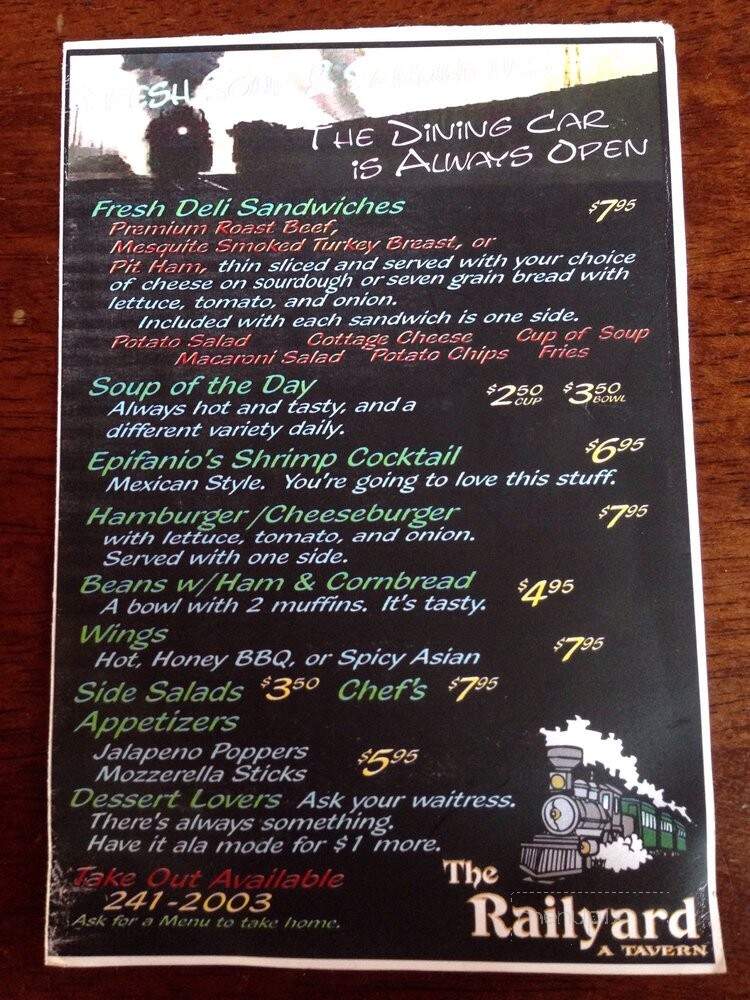 THE DINING CAR
IS ALWAYS OPEN
Fresh Deli Sandwiches $7.95
Premium Roast Beef,
Mesquite Smoked Turkey Breast, or
Pit Ham, thin sliced and served with your choice
of cheese on sourdough or seven grain bread with
lettuce, tomato, and onion.
Included with each sandwich is one side.
Potato Salad Cottage Cheese Cup of Soup
Macaroni Salad Potato Chips Fries
Soup of the Day $2.50 CUP $3.50 BOWL
Always hot and tasty, and a
different variety daily.
Epifanio's Shrimp Cocktail $6.95
Mexican Style. You're going to love this stuff.
Hamburger/Cheeseburger $7.95
with lettuce, tomato, and onion.
Served with one side.
Beans w/Ham & Cornbread $4.95
A bowl with 2 muffins. It's tasty.
Wings $7.95
Hot, Honey BBQ, or Spicy Asian
Side Salads $3.50 Chef's $7.95
Appetizers
Jalapeno Poppers $5.95
Mozzerella Sticks
Dessert Lovers Ask your waitress.
There's always something.
Have it ala mode for $1 more.
Take Out Available
241-2003
Ask for a Menu to take home.
The
Railyard
A TAVERN